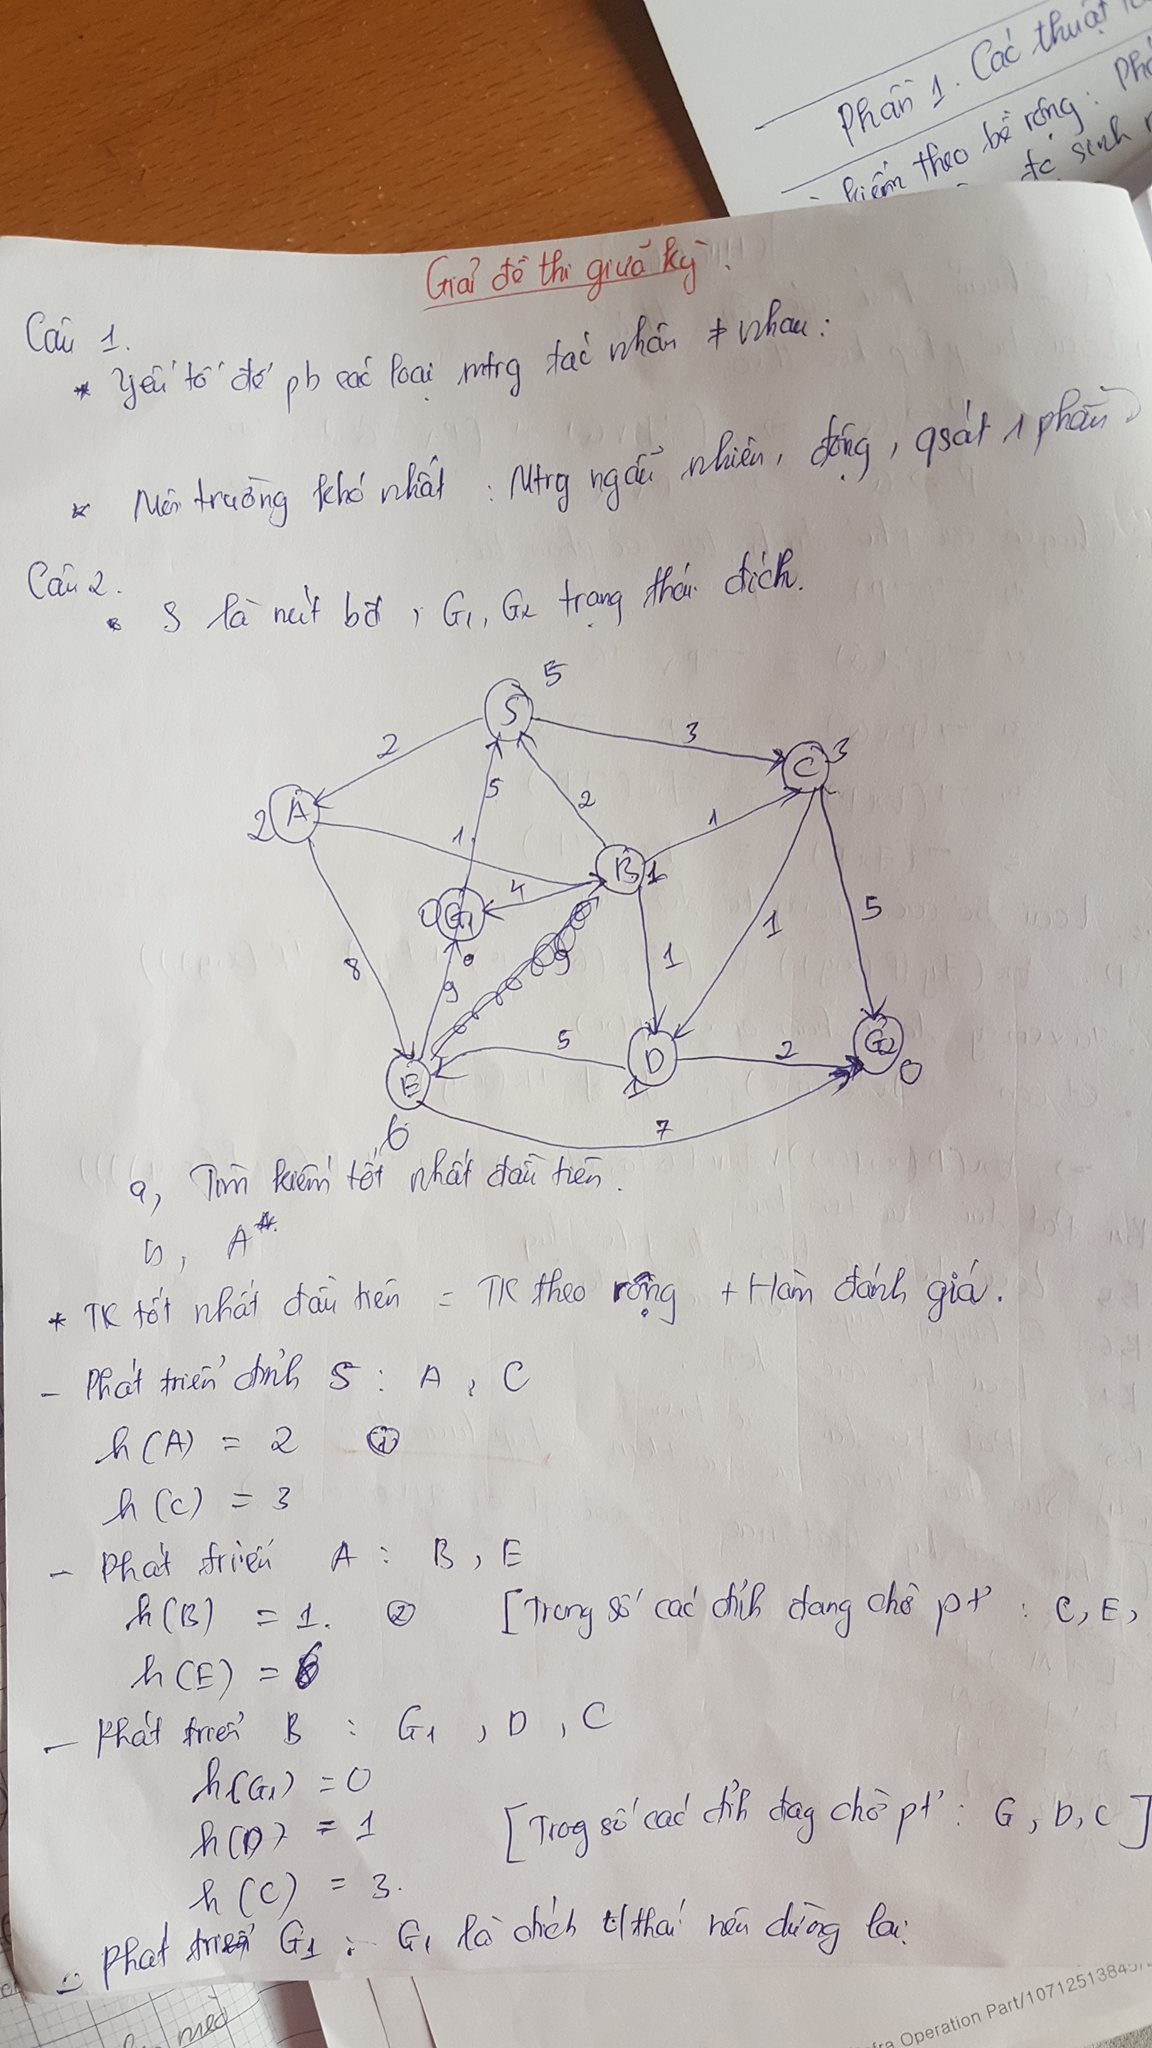 Phần 1. Các thuật
kiếm theo bề rộng: Ph
sinh
Giải đề thi giữa kỳ.
Câu 1.
* Yếu tố để pb các loại mtrg tác nhân ≠ nhau:
* Môi trường khó nhất: Mtrg ngẫu nhiên, động, qsát 1 phần
Câu 2.
* S là nút bđ, G1, G2 trạng thái đích.
S 5
2 3
A 2 C 3
5 2
1 1
B 1
4
G1 0
8 9 1 1 5
5
E 6 D 1 2 G2 0
7
a, Tìm kiếm tốt nhất đầu tiên.
b, A*
* TK tốt nhất đầu tiên = TK theo rộng + Hàm đánh giá.
- Phát triển đỉnh S: A, C
h(A) = 2 ①
h(C) = 3
- Phát triển A: B, E
h(B) = 1. ② [Trong số các đỉnh đang chờ pt: C, E,
h(E) = 6
- Phát triển B: G1, D, C
h(G1) = 0
h(D) = 1 [Trog số các đỉh đag chờ pt: G, D, C]
h(C) = 3.
- Phát triển G1: G1 là đích t/thái nên dừng lại.
fra Operation Part/107125138